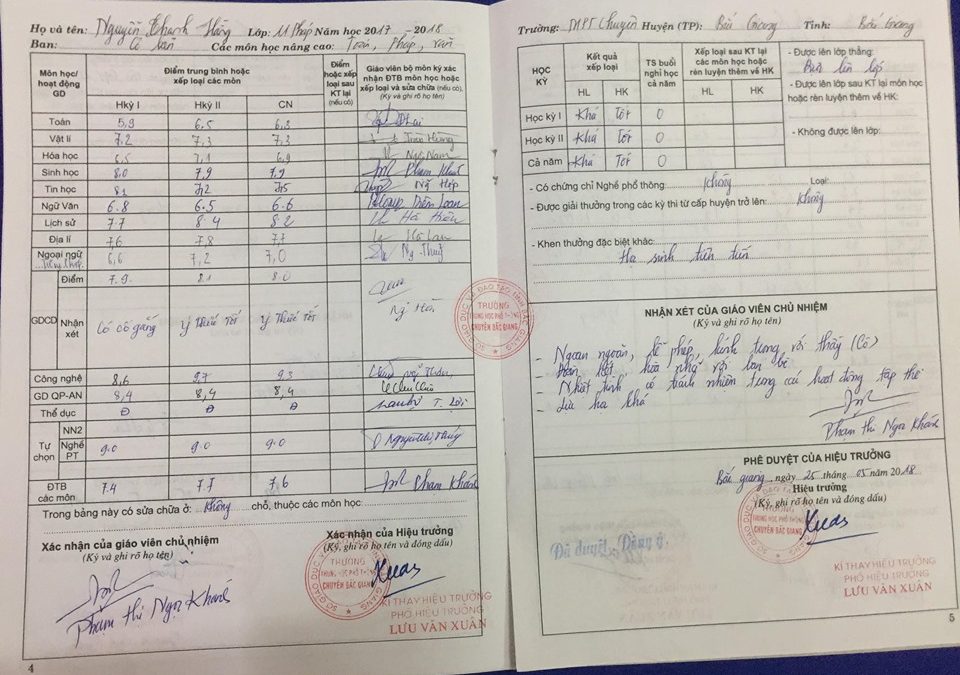 Họ và tên: Nguyễn Thanh Hằng Lớp: 11 Pháp Năm học 2017 - 2018
Ban: Các môn học nâng cao: Toán, Pháp, Văn
Môn học/ hoạt động GD
Điểm trung bình hoặc xếp loại các môn
Điểm hoặc xếp loại sau KT lại (nếu có)
Giáo viên bộ môn ký xác nhận ĐTB môn học hoặc xếp loại và sửa chữa (nếu có). (Ký và ghi rõ họ tên)
Hkỳ I Hkỳ II CN
Toán 5,9 6,5 6,3
Vật lí 7,2 7,3 7,3
Hóa học 6,5 7,1 6,9
Sinh học 8,0 7,9 7,9 Phạm Khánh
Tin học 8,1 7,2 7,5
Ngữ Văn 6.8 6.5 6.6
Lịch sử 7.7 8.4 8.2
Địa lí 7,6 7,8 7,7
Ngoại ngữ 6,6 7,2 7,0
GDCD
Điểm 7.9 8.1 8.0
Nhận xét Có cố gắng Ý thức tốt Ý thức tốt
Công nghệ 8,6 9,7 9,3
GD QP-AN 8,4 8,4 8,4
Thể dục Đ Đ Đ
Tự chọn
NN2
Nghề PT 9.0 9.0 9.0
ĐTB các môn 7.4 7.7 7.6 Phạm Khánh
Trong bảng này có sửa chữa ở: không chỗ, thuộc các môn học:
Xác nhận của giáo viên chủ nhiệm
(Ký, ghi rõ họ tên)
Phạm Thị Ngọc Khánh
Xác nhận của Hiệu trưởng
(Ký, ghi rõ họ tên và đóng dấu)
TRƯỜNG
TRUNG HỌC PHỔ THÔNG
CHUYÊN BẮC GIANG
KÍ THAY HIỆU TRƯỞNG
PHÓ HIỆU TRƯỞNG
LƯU VĂN XUÂN
4
SỞ GIÁO DỤC VÀ ĐÀO TẠO TỈNH BẮC GIANG
TRƯỜNG
TRUNG HỌC PHỔ THÔNG
CHUYÊN BẮC GIANG
Trường: THPT Chuyên Huyện (TP): Bắc Giang Tỉnh: Bắc Giang
HỌC KỲ
Kết quả xếp loại
TS buổi nghỉ học cả năm
Xếp loại sau KT lại các môn học hoặc rèn luyện thêm về HK
HL HK HL HK
Học kỳ I Khá Tốt 0
Học kỳ II Khá Tốt 0
Cả năm Khá Tốt 0
- Được lên lớp thẳng:
Được lên lớp
- Được lên lớp sau KT lại môn học hoặc rèn luyện thêm về HK:
- Không được lên lớp:
- Có chứng chỉ Nghề phổ thông: Không Loại:
- Được giải thưởng trong các kỳ thi từ cấp huyện trở lên: Không
- Khen thưởng đặc biệt khác:
Học sinh tiên tiến
NHẬN XÉT CỦA GIÁO VIÊN CHỦ NHIỆM
(Ký và ghi rõ họ tên)
- Ngoan ngoãn, lễ phép, kính trọng với thầy (cô)
- Đoàn kết, hòa nhã với bạn bè
- Nhiệt tình, có trách nhiệm trong các hoạt động tập thể
Phạm Thị Ngọc Khánh
PHÊ DUYỆT CỦA HIỆU TRƯỞNG
Bắc Giang, ngày 25 tháng 05 năm 2018
Hiệu trưởng
(Ký, ghi rõ họ tên và đóng dấu)
Đã duyệt, Đồng ý.
TRƯỜNG
TRUNG HỌC PHỔ THÔNG
CHUYÊN BẮC GIANG
KÍ THAY HIỆU TRƯỞNG
PHÓ HIỆU TRƯỞNG
LƯU VĂN XUÂN
5